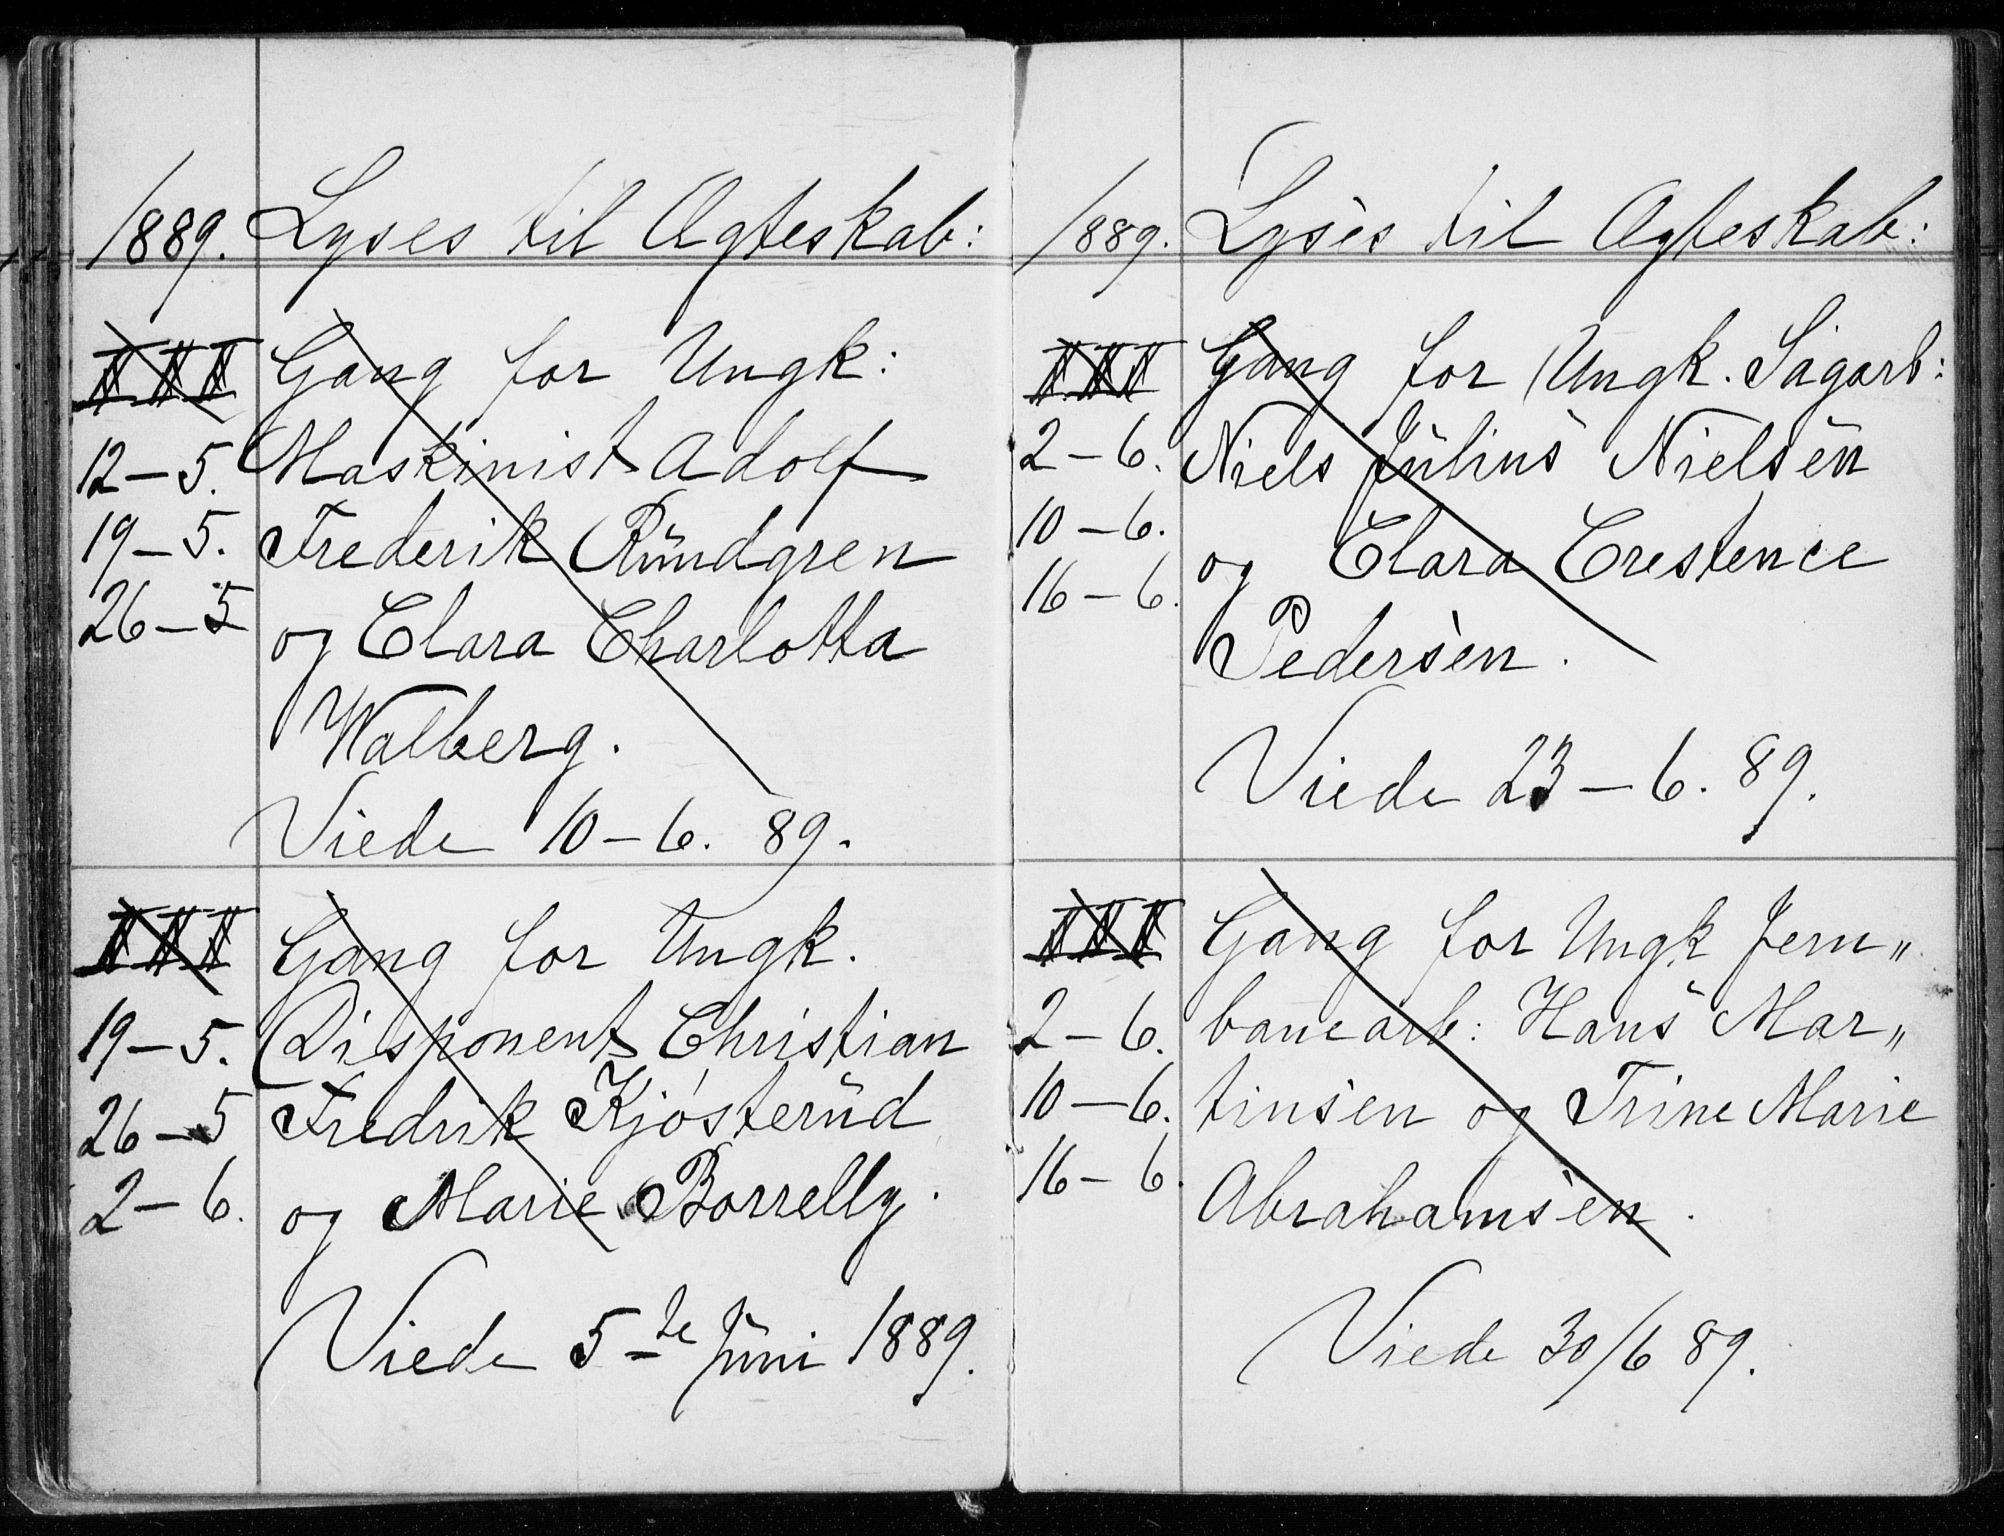 1889. Lyses til Ægteskab:
III Gang for Ungk:
12–5. Maskinist Adolf
19–5. Frederik Rundgren
26–5 og Clara Charlotta
Walberg.
Viede 10–6. 89.
III Gang for Ungk.
19–5. Disponent Christian
26–5 Fredrik Kjøsterud
2–6. og Marie Borrelly.
Viede 5te Juni 1889.
1889. Lyses til Ægteskab:
III Gang for Ungk. Sagarb:
2–6. Niels Julius Nielsen
10–6. og Clara Crestence
16–6. Pedersen.
Viede 23–6. 89.
III Gang for Ungk Jern„
2–6. banearb: Hans Mar„
10–6. tinsen og Trine Marie
16–6. Abrahamsen.
Viede 30/6 89.